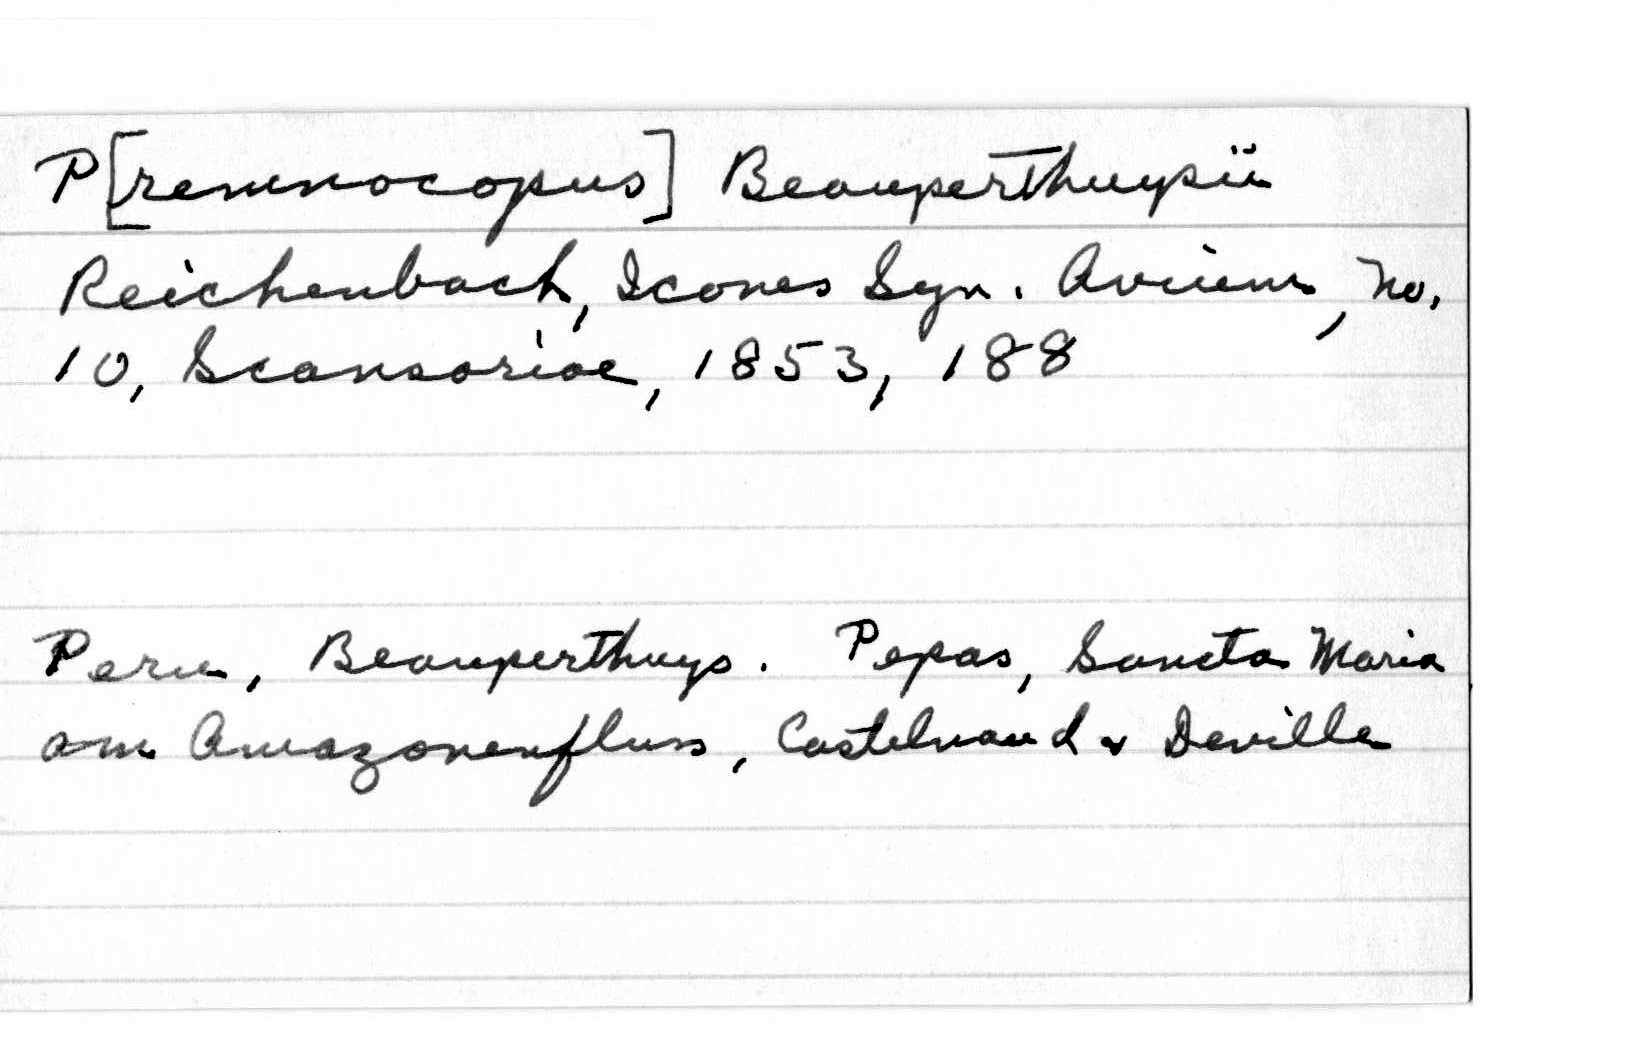 P[remnocopus] Beauperthuysii
Reichenbach, Icones Syn. Avium, No.
10, Scansoriae, 1853, 188
Peru, Beauperthuys. Pepas, Sancta Maria
am Amazonenfluss, Castelnaud & Deville